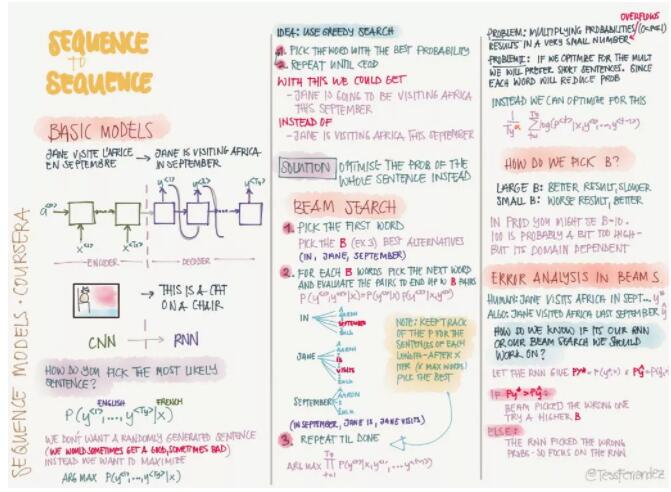 SEQUENCE
TO
SEQUENCE
BASIC MODELS
JANE VISITE L'AFRICE
EN SEPTEMBRE
JANE IS VISITING AFRICA
IN SEPTEMBER
a<0>
x<1>
x<Tx>
y<1>
y<2>
y<Ty>
ENCODER
DECODER
THIS IS A CAT
ON A CHAIR
CNN
RNN
HOW DO YOU PICK THE MOST LIKELY
SENTENCE?
ENGLISH
FRENCH
P(y<1>,...,y<Ty>|x)
WE DON'T WANT A RANDOMLY GENERATED SENTENCE
(WE WOULD SOMETIMES GET A GOOD, SOMETIMES BAD)
INSTEAD WE WANT TO MAXIMIZE
ARG MAX P(y<1>,...,y<Ty>|x)
SEQUENCE MODELS · COURSERA
IDEA: USE GREEDY SEARCH
1. PICK THE WORD WITH THE BEST PROBABILITY
2. REPEAT UNTIL <EOD
WITH THIS WE COULD GET
- JANE IS GOING TO BE VISITING AFRICA
THIS SEPTEMBER
INSTEAD OF
- JANE IS VISITING AFRICA THIS SEPTEMBER
SOLUTION
OPTIMISE THE PROB OF THE
WHOLE SENTENCE INSTEAD
BEAM SEARCH
1. PICK THE FIRST WORD
PICK THE B (EX 3) BEST ALTERNATIVES
(IN, JANE, SEPTEMBER)
2. FOR EACH B WORDS PICK THE NEXT WORD
AND EVALUATE THE PAIRS TO END UP W B PAIRS
P(y<1>,y<2>|x) = P(y<1>|x) P(y<2>|x,y<1>)
IN
A
AARON
SEPTEMBER
JANE
A
AARON
IS
VISITS
SEPTEMBER
A
AARON
NOTE: KEEP TRACK
OF THE P FOR THE
SENTENCES OF EACH
LENGTH - AFTER X
ITER (X MAX WORDS)
PICK THE BEST
(IN SEPTEMBER, JANE IS, JANE VISITS)
3. REPEAT TIL DONE
ARG MAX
OVERFLOWS
PROBLEM: MULTIPLYING PROBABILITIES (0<P<1)
RESULTS IN A VERY SMALL NUMBER
PROBLEM II: IF WE OPTIMIZE FOR THE MULT
WE WILL PREFER SHORT SENTENCES. SINCE
EACH WORD WILL REDUCE PROB
INSTEAD WE CAN OPTIMIZE FOR THIS
HOW DO WE PICK B?
LARGE B: BETTER RESULT, SLOWER
SMALL B: WORSE RESULT, BETTER
IN PROD YOU MIGHT SE B=10.
100 IS PROBABLY A BIT TOO HIGH-
BUT ITS DOMAIN DEPENDENT
ERROR ANALYSIS IN BEAM S
HUMAN: JANE VISITS AFRICA IN SEPT... y*
ALGO: JANE VISITED AFRICA LAST SEPTEMBER ŷ
HOW DO WE KNOW IF ITS OUR RNN
OR OUR BEAM SEARCH WE SHOULD
WORK ON?
LET THE RNN GIVE
IF Py* > Pŷ:
BEAM PICKED THE WRONG ONE
TRY A HIGHER B
ELSE:
THE RNN PICKED THE WRONG
PROBS - SO FOCUS ON THE RNN
@TessFerrandez